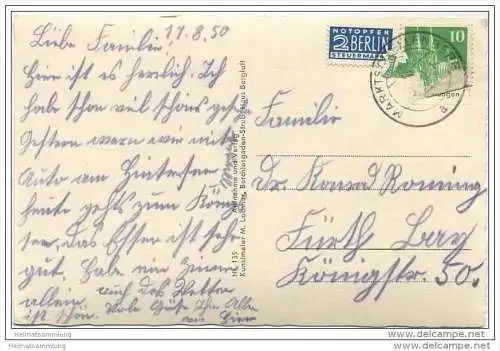 Liebe Familie! 17.8.50
Hier ist es herrlich. Ich
habe schon viel schönes ges
Gestern waren wir mit
Auto am Hintersee
heute gehts zum König
see, das Essen ist sehr
gut. Habe ein Zimmer
allein, auch das Wetter
ist schön. Viele Grüße Ihnen Allen
NOTOPFER
2 BERLIN
STEUERMARKE
10
MARKTSCH
Nr. 135 Aufnahme und Verlag
Kunstmaler M. Berchtesgaden-Strub, Haus Bergluft
Familie
Dr. Konrad Roming
Fürth Bay
Königstr. 50.
Heimatsammlung
http://www.heimatsammlung.de